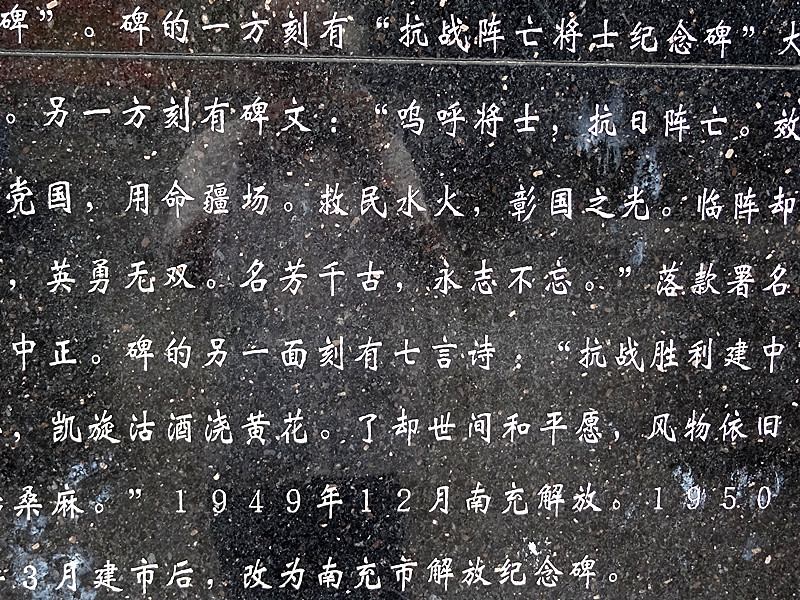 碑”。碑的一方刻有“抗战阵亡将士纪念碑”大
。另一方刻有碑文：“呜呼将士，抗日阵亡。效
党国，用命疆场。救民水火，彰国之光。临阵却
，英勇无双。名芳千古，永志不忘。”落款署名
中正。碑的另一面刻有七言诗：“抗战胜利建中
，凯旋沽酒浇黄花。了却世间和平愿，风物依旧
桑麻。”1949年12月南充解放。1950
3月建市后，改为南充市解放纪念碑。